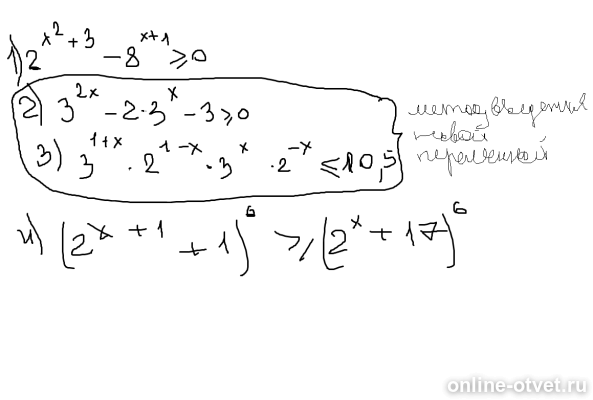 1) 2^{x^2+3} - 8^{x+1} ⩾ 0
2) 3^{2x} - 2·3^x - 3 ⩾ 0
3) 3^{1+x} · 2^{1-x} · 3^x · 2^{-x} ⩽ 10,5
метод введения
новой
переменной
4) (2^{x+1} + 1)^6 ⩾ (2^x + 17)^6
online-otvet.ru